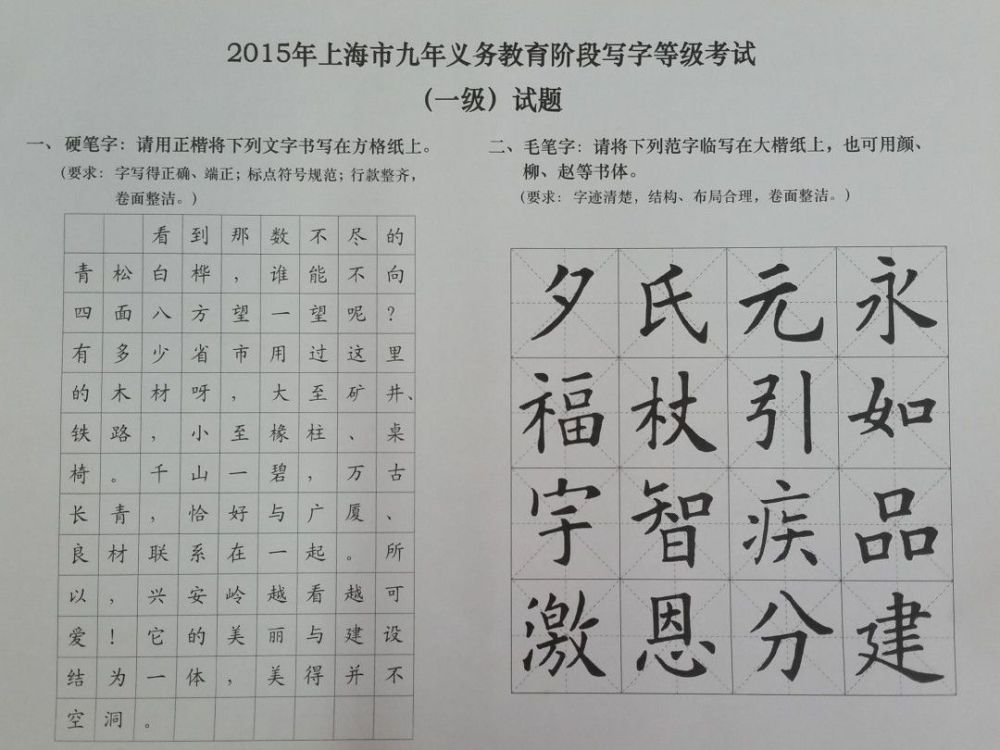 2015年上海市九年义务教育阶段写字等级考试
（一级）试题
一、硬笔字：请用正楷将下列文字书写在方格纸上。
（要求：字写得正确、端正；标点符号规范；行款整齐，
卷面整洁。）
看到那数不尽的
青松白桦，谁能不向
四面八方望一望呢？
有多少省市用过这里
的木材呀，大至矿井、
铁路，小至椽柱、桌
椅。千山一碧，万古
长青，恰好与广厦、
良材联系在一起。所
以，兴安岭越看越可
爱！它的美丽与建设
结为一体，美得并不
空洞。
二、毛笔字：请将下列范字临写在大楷纸上，也可用颜、
柳、赵等书体。
（要求：字迹清楚，结构、布局合理，卷面整洁。）
夕氏元永
福杖引如
宇智疾品
激恩分建